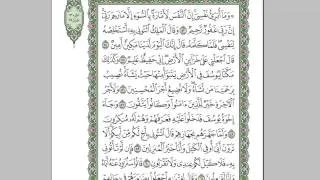 ۞ وَمَا أُبَرِّئُ نَفْسِي إِنَّ النَّفْسَ لَأَمَّارَةٌ بِالسُّوءِ إِلَّا مَا رَحِمَ رَبِّي
إِنَّ رَبِّي غَفُورٌ رَّحِيمٌ وَقَالَ الْمَلِكُ ائْتُونِي بِهِ أَسْتَخْلِصْهُ
لِنَفْسِي فَلَمَّا كَلَّمَهُ قَالَ إِنَّكَ الْيَوْمَ لَدَيْنَا مَكِينٌ أَمِينٌ قَالَ
اجْعَلْنِي عَلَىٰ خَزَائِنِ الْأَرْضِ إِنِّي حَفِيظٌ عَلِيمٌ وَكَذَٰلِكَ
مَكَّنَّا لِيُوسُفَ فِي الْأَرْضِ يَتَبَوَّأُ مِنْهَا حَيْثُ يَشَاءُ نُصِيبُ
بِرَحْمَتِنَا مَن نَّشَاءُ وَلَا نُضِيعُ أَجْرَ الْمُحْسِنِينَ وَلَأَجْرُ
الْآخِرَةِ خَيْرٌ لِّلَّذِينَ آمَنُوا وَكَانُوا يَتَّقُونَ وَجَاءَ
إِخْوَةُ يُوسُفَ فَدَخَلُوا عَلَيْهِ فَعَرَفَهُمْ وَهُمْ لَهُ مُنكِرُونَ
وَلَمَّا جَهَّزَهُم بِجَهَازِهِمْ قَالَ ائْتُونِي بِأَخٍ لَّكُم مِّنْ أَبِيكُمْ أَلَا
تَرَوْنَ أَنِّي أُوفِي الْكَيْلَ وَأَنَا خَيْرُ الْمُنزِلِينَ فَإِن لَّمْ تَأْتُونِي
بِهِ فَلَا كَيْلَ لَكُمْ عِندِي وَلَا تَقْرَبُونِ قَالُوا سَنُرَاوِدُ عَنْهُ